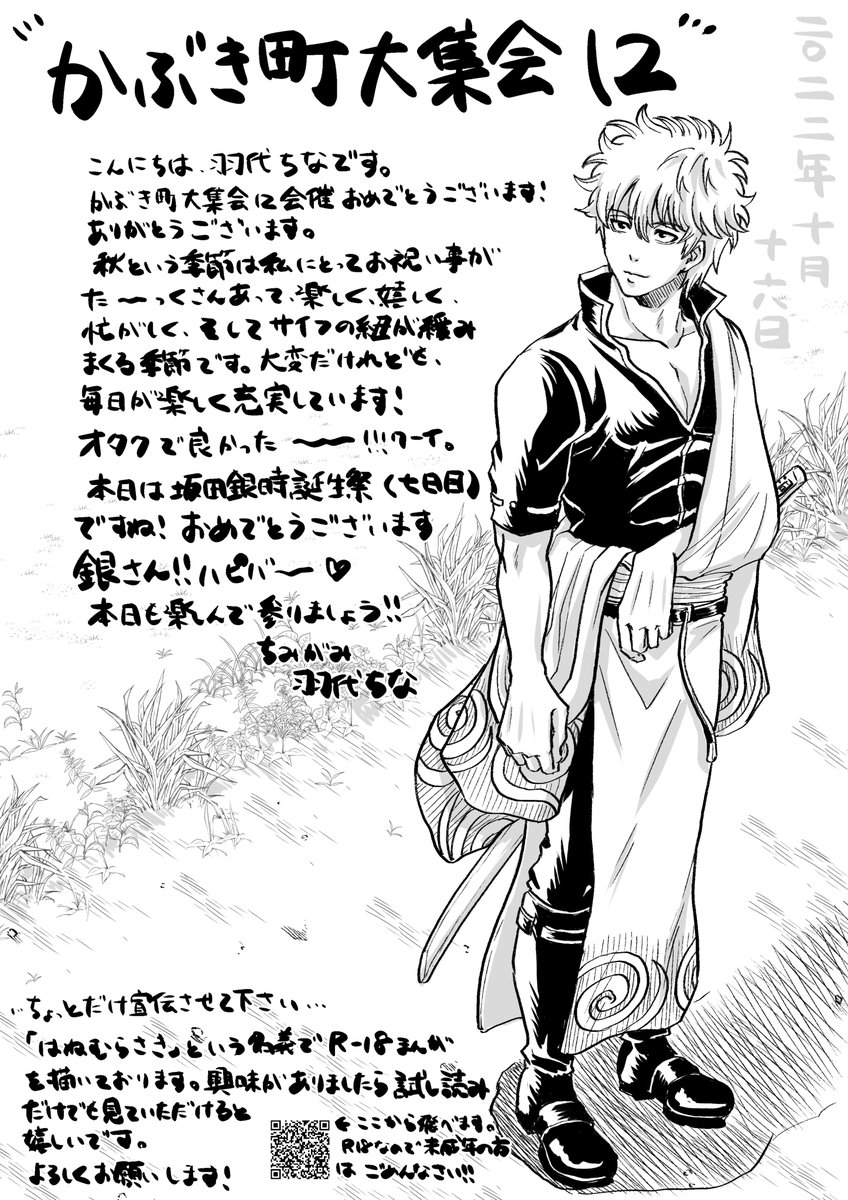 "かぶき町大集会12"
二〇二二年十月
十六日
こんにちは、羽代ちなです。
かぶき町大集会12会催おめでとうございます!
ありがとうございます。
秋という季節は私にとってお祝い事が
た〜〜っくさんあって、楽しく、嬉しく、
忙がしく、そしてサイフの紐が緩み
まくる季節です。大変だけれども、
毎日が楽しく充実しています!
オタクで良かった〜〜!!!ワーイ。
本日は坂田銀時誕生祭(七日目)
ですね!おめでとうございます
銀さん!!ハピバー♡
本日も楽しんで参りましょう!!
ちみがみ
羽代ちな
…ちょっとだけ宣伝させて下さい…
「はねむらさき」という名義でR-18まんが
を描いております。興味がありましたら試し読み
だけでも見ていただけると
嬉しいです。
よろしくお願いします!
←ここから飛べます。
R18なので未成年の方
はごめんなさい!!